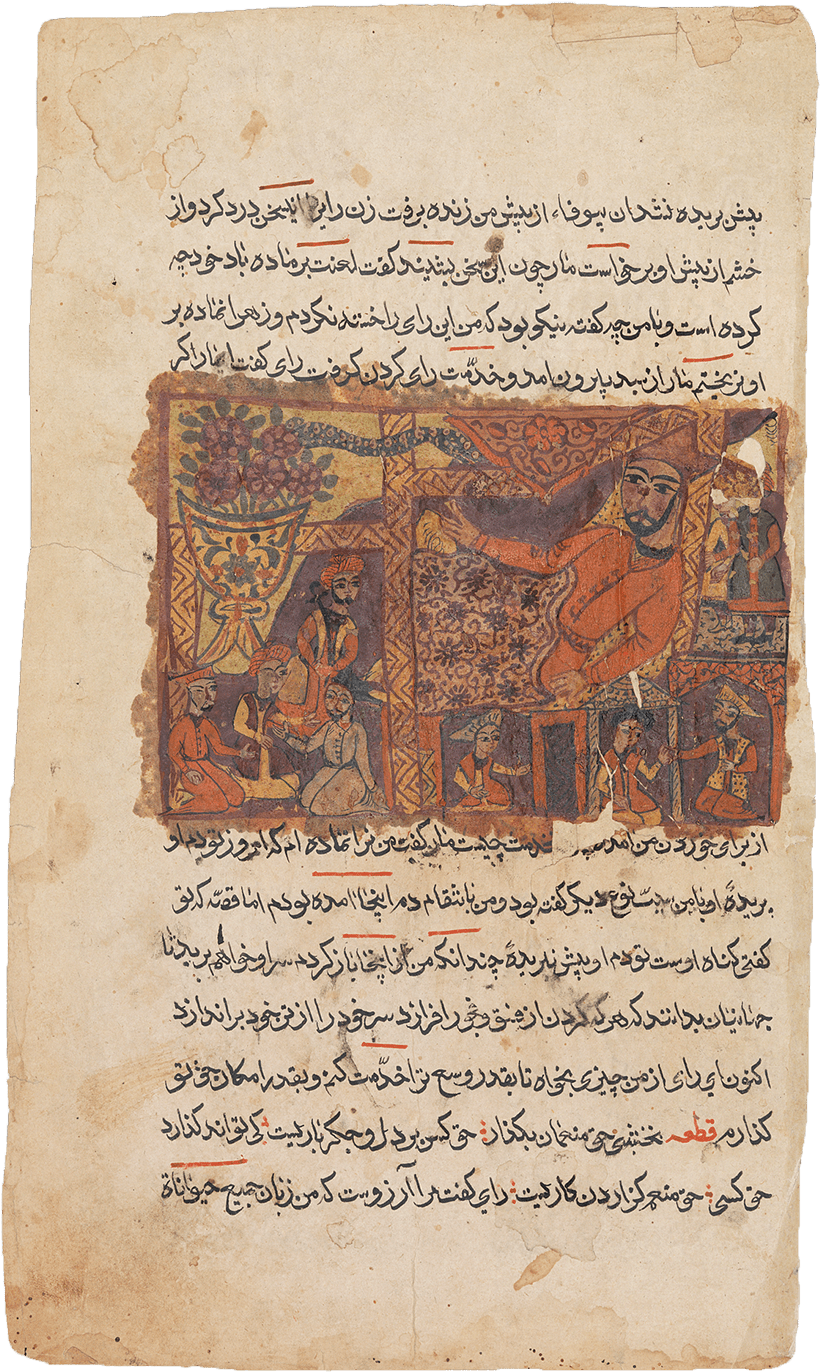 پیش بریده نشد آن بیوفاء از پیش من زنده برفت زن را این سخن درد کرد و از
خشم از پیش او برخواست مار چون این سخن بشنید گفت لعنت بر ماده باد خود چه
کرده است و با من چه گفته نیکو بود که من این رای را خسته نکردم و زهر اندام بر
او نریختم مار از سبد بیرون آمد و خدمت رای کردن گرفت رای گفت ای مار اگر
از برای خوردن من آمده خدمت چیست مار گفت من نر آن ماده ام که امروز تو دم او
بریدهٔ او با من بنوع دیگر گفته بود و من بانتقام دم اینجا آمده بودم اما قصه که تو
گفتی گناه اوست تو دم او بیش نبریدهٔ چندانکه من از اینجا باز گردم سر او خواهم برید تا
جهانیان بدانند که هر که گردن از فسق و فجور افرازد سر خود را از تن خود براندازد
اکنون ای رای از من چیزی بخواه تا بقدر وسع ترا خدمت کنم و بقدر امکان حق تو
گذارم قطعه نخشبی حق منعمان بگذار حق کس بر دل و جگر باریست کی تواند گذارد
حق کسی حق منعم گزاردن کاریست رای گفت مرا آرزوست که من زبان جمیع حیوانات